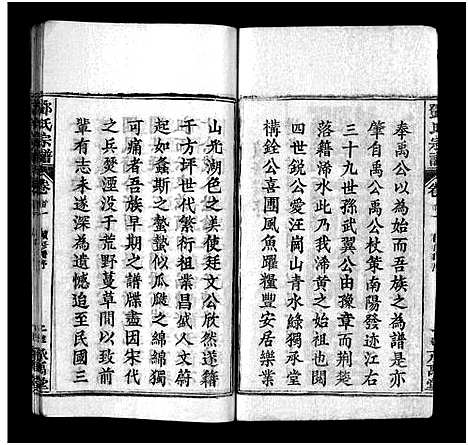 奉禹公以為始而吾族之為譜是亦
肇自禹公禹公杖策南陽發迹江右
三十九世孫武翼公由豫章而荆楚
落籍浠水此乃我浠黃之始祖也閱
四世銳公愛汪崗山青水綠獨承堂
構銓公喜團風魚躍糧豐安居樂業
山光湖色之美使廷文公欣然遂籍
千方坪世代繁衍祖業昌盛人文蔚
起如螽斯之蟄蟄似瓜瓞之綿綿獨
可痛者吾族早期之譜牒盡因宋代
之兵燹湮没于荒野蔓草間以致前
輩有志未遂深為遺憾迨至民國三
鄧氏宗譜
卷首一